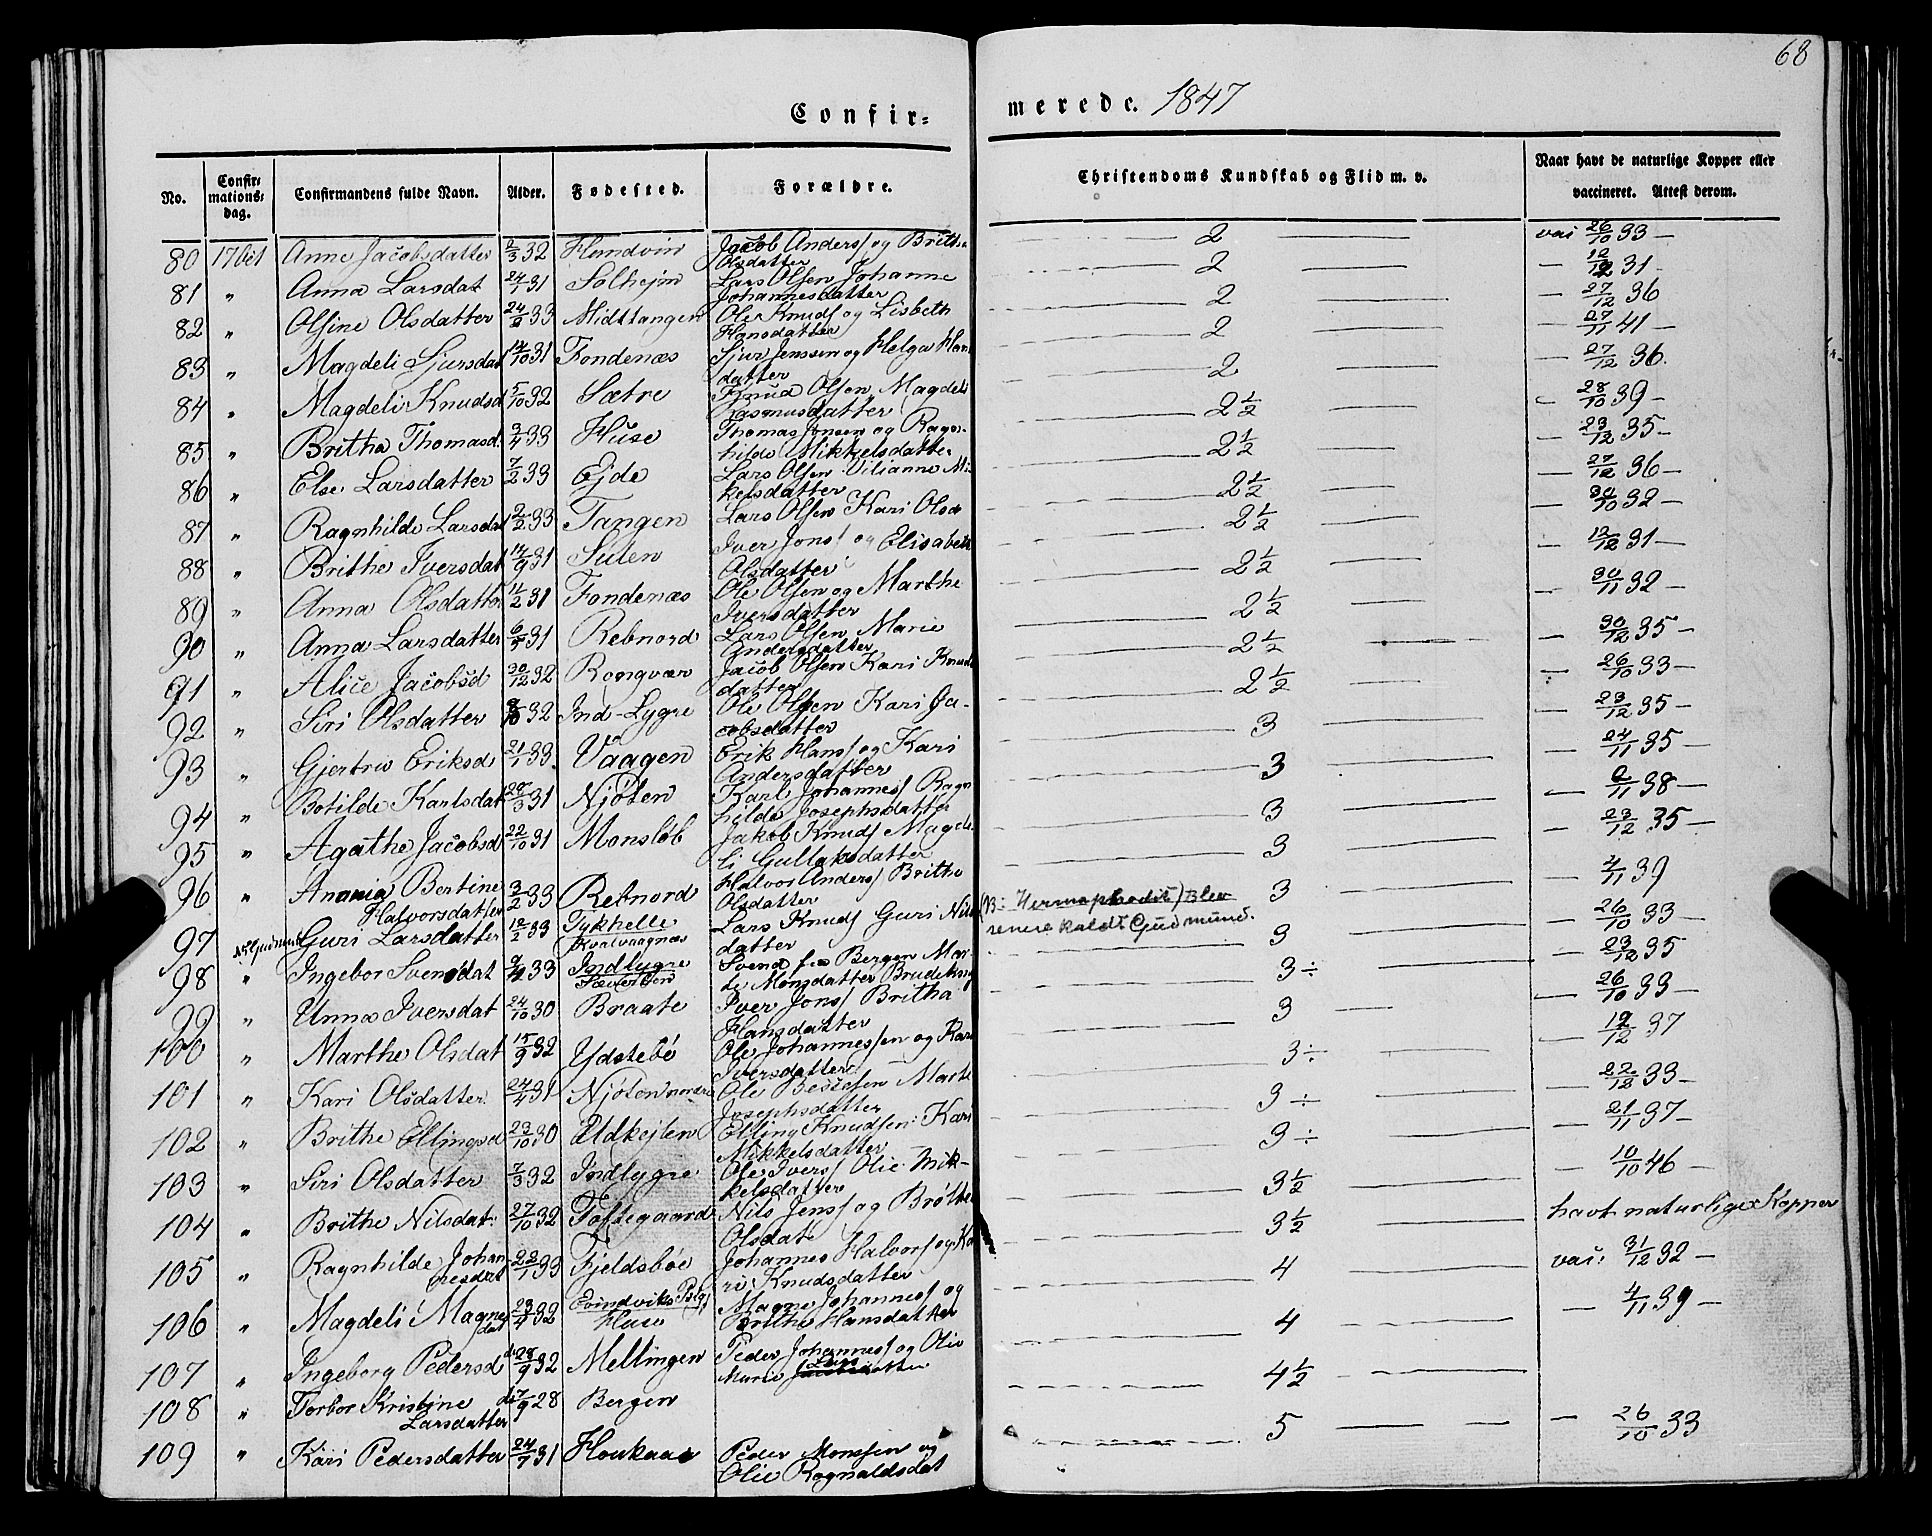 68
Confir= merede. 1847
No. Confirmationsdag. Confirmandens fulde Navn. Alder. Fødested. Forældre. Christendoms Kundskab og Flid m. v. Naar havt de naturlige Kopper eller vaccineret. Attest derom.
80 17 Anne Jacobsdatter 2/3 32 Hundvin Jacob Anders og Brithe Olsdatter 2 26/10 33
81 " Anna Larsdat 24/1 31 Solhejm Lars Olsen Johanne Johannesdatter 2 12/12 31
82 " Olsine Olsdatter 24/2 33 Midttangen Ole Knuds og Lisbeth Hansdatter 2 27/12 36
83 " Magdeli Sjursdat 14/10 31 Fondenæs Sjur Jenssen og Helga Hans datter 2 27/11 41
84 " Magdeli Knudsd 5/10 32 Sætre Knud Olsen Magdeli Rasmusdatter 2 27/12 36.
85 " Britha Thomasd. 3/4 33 Huse Thomas Jonsen og Ragn- hilde Mikkelsdatter 2½ 28/10 39
86 " Else Larsdatter 7/2 33 Ejde Lars Olsen Vilianne Mi- kelsdatter 2½ 23/12 35
87 " Ragnhilde Larsdat 2/2 33 Tangen Lars Olsen Kari Olsd 2½ 27/12 36
88 " Brithe Iversdat 14/9 31 Sulen Iver Jons og Elisabeth Olsdatter 2½ 30/10 32
89 " Anna Olsdatter 11/2 31 Fondenæs Ole Olsen og Marthe Iversdatter 2½ 12/12 31
90 " Anna Larsdatter 6/5 31 Rebnord Lars Olsen Marie Andersdatter 2½ 30/11 32
91 " Alice Jacobsd 30/12 32 Rongvær Jacob Olsen Kari Knuds datter 2½ 30/12 35
92 " Siri Olsdatter 8/10 32 Ind-Lygre Ole Olsen Kari Ja- cobsdatter 2½ 26/10 33
93 " Gjertru Eriksd 21/1 33 Vaagen Erik Hans og Kari Andersdatter 3 23/12 35
94 " Botilde Karlsdat 28/3 31 Njøten Karl Johannes Ragn hilde Josephsdatter 3 24/11 35
95 " Agathe Jacobsd 22/10 31 Monsløb Jakob Knuds Magde- li Gullaksdatter 3 2/11 38
96 " Anania Bertine Halvorsdatter 3/2 33 Rebnord Halvor Anders Brithe Olsdatter 3 23/12 35
97 Guri Larsdatter 12/2 33 Tykhelle Kvalvaagnæs Lars Knuds Guri Nils datter (NB: Hermaphrodit) Blev senere kaldt Gudmund. 3 4/11 39
98 " Ingebor Svensdat 9/4 33 Indlygre Svend fra Bergen Mar- te Monsdatter 3 26/10 33
99 " Unna Iversdat 24/10 30 Braate Iver Jons Britha Hansdatter 3÷ 23/12 35
100 " Marthe Olsdat 15/9 32 Ydstebø Ole Johannessen og Kari Iversdatter 3 26/10 33
101 " Kari Olsdatter 24/4 31 Njøten Ole Marte Josephsdatter 3÷ 12/12 37
102 " Brithe Ellingsd 23/10 30 Udkejlen Elling Knudsen Kari Mikkelsdatter 3÷ 22/12 33
103 " Siri Olsdatter 7/3 32 Indlygre Ole Ivers Olie Mik- kelsdatter 3÷ 21/11 37
104 " Brithe Nilsdat: 27/10 32 Toftegaard Nils Jens og Brithe Olsdat 3½ 10/10 46
105 " Ragnhilde Johan nesdat 22/1 33 Fjeldsbøe Johannes Halvors og Ka ri Knudsdatter 3½ havt naturlige Kopper
106 " Magdeli Magne dat 23/4 32 Evindviks Huse Magne Johannes og Brithe Hansdatter 4 vac: 31/12 32
107 " Ingeborg Pedersd 28/9 32 Mellingen Peder Johannes og Olie Marie Larsdatter 4 4/11 39
108 " Torbor Kristine Larsdatter 7/9 28 Bergen 4½
109 " Kari Pedersdatter 24/7 31 Houkaas Peder Monssen og Olie Ragnaldsdat 5 26/10 33